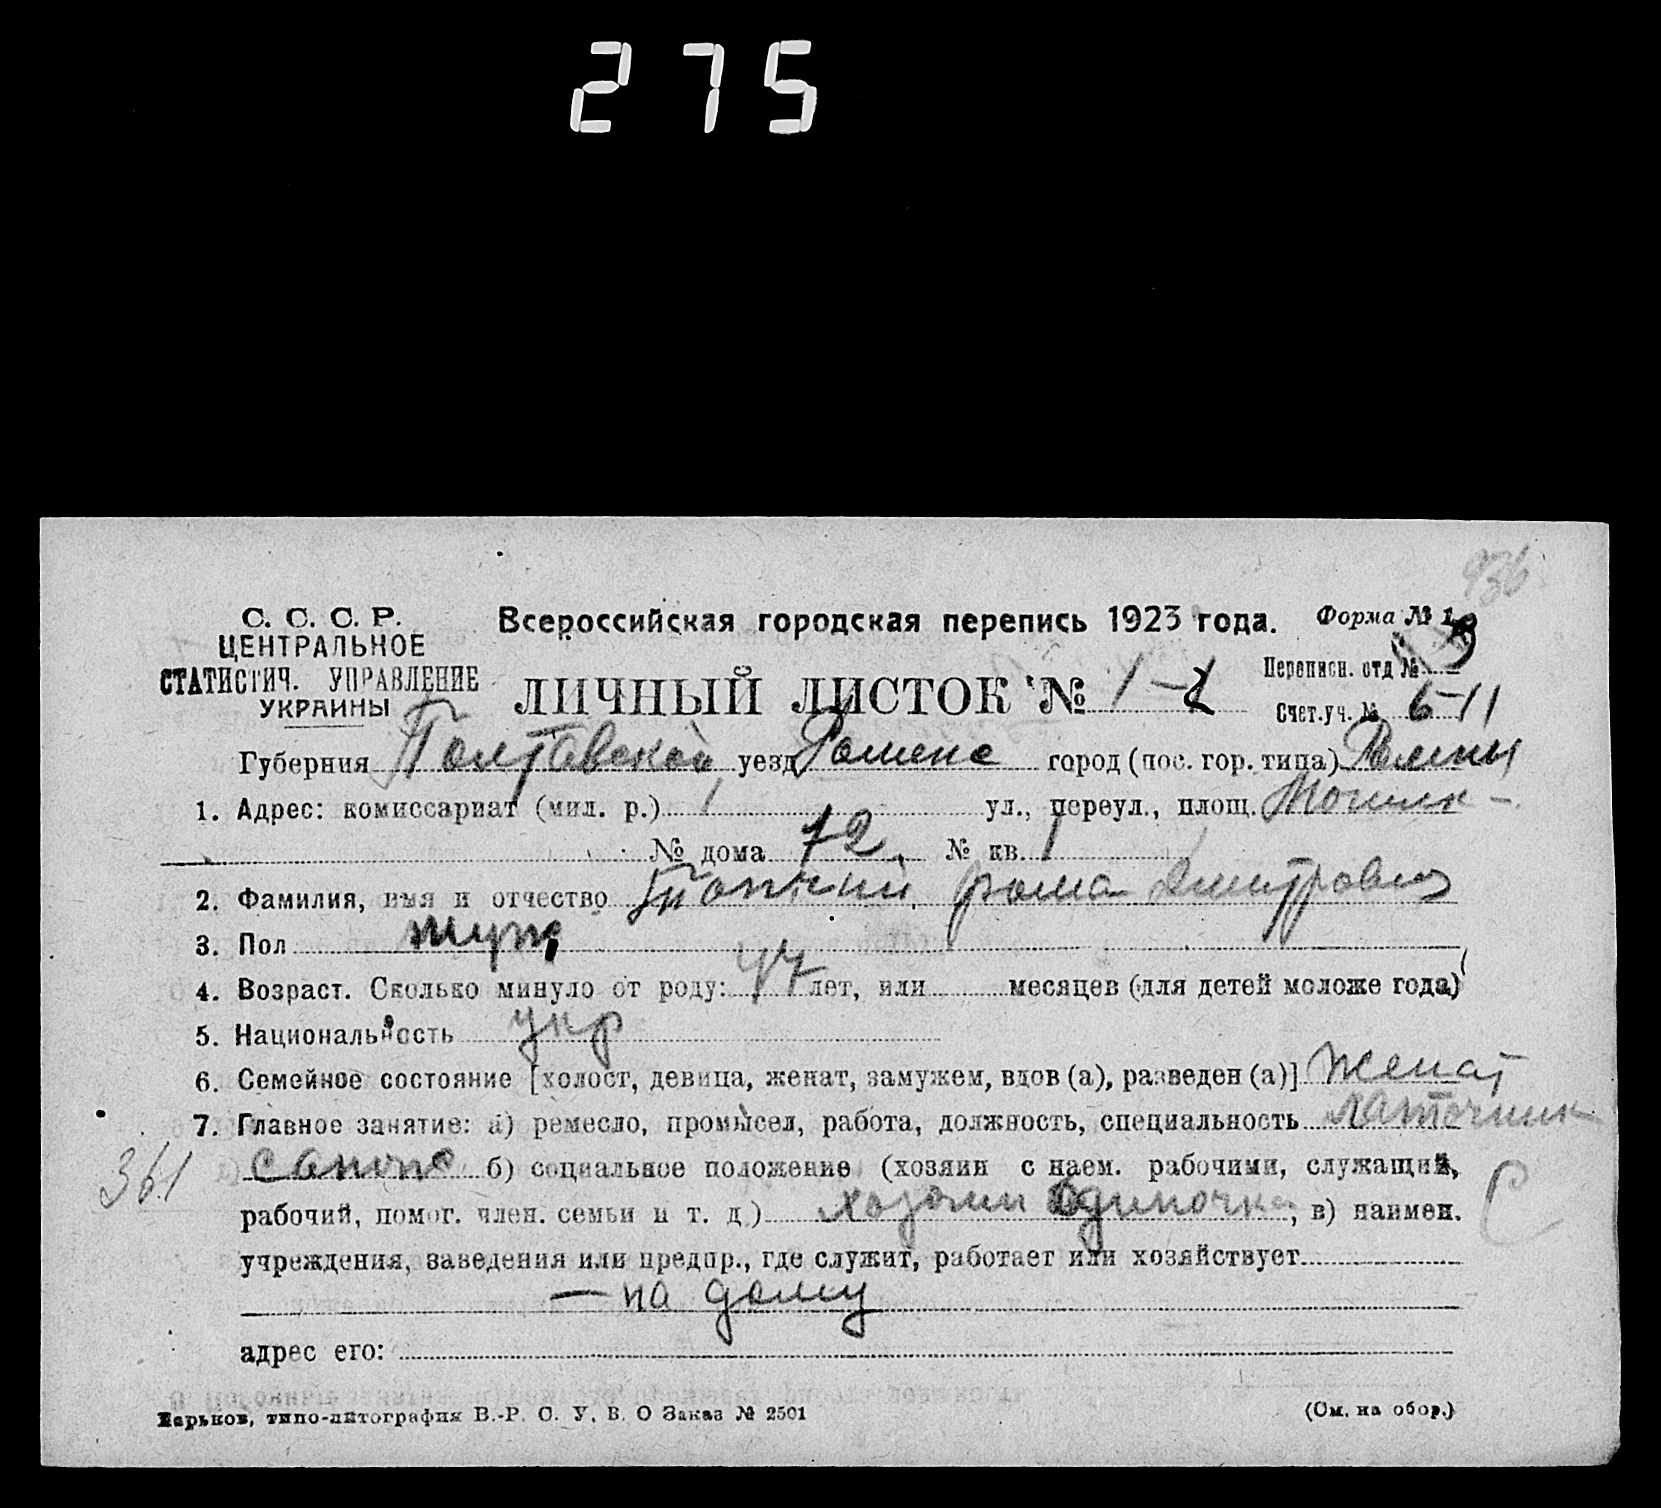 275
936
С. С. С. Р.
ЦЕНТРАЛЬНОЕ
СТАТИСТИЧ. УПРАВЛЕНИЕ
УКРАИНЫ
Всероссийская городская перепись 1923 года.
Форма № 1
ЛИЧНЫЙ ЛИСТОК № 1-
Переписн. отд №
Счет.уч. № 6-11
Губерния Полтавской уезд Роменс город (пос. гор. типа) Ромны
1. Адрес: комиссариат (мил. р.) 1 ул., переул., площ.
№ дома 72, № кв. 1
2. Фамилия, имя и отчество Фома Дмитрович
3. Пол муж
4. Возраст. Сколько минуло от роду: 47 лет, или месяцев (для детей моложе года)
5. Национальность укр
6. Семейное состояние [холост, девица, женат, замужем, вдов (а), разведен (а)] женат
7. Главное занятие: а) ремесло, промысел, работа, должность, специальность латочник
361 сапож б) социальное положение (хозяин с наем. рабочими, служащий,
рабочий, помог. член. семьи и т. д.) хозяин одиночка, в) наимен. С
учреждения, заведения или предпр., где служит, работает или хозяйствует
— на дому
адрес его:
Харьков, типо-литография В.-Р. О. У. В. О Заказ № 2501
(См. на обор.)